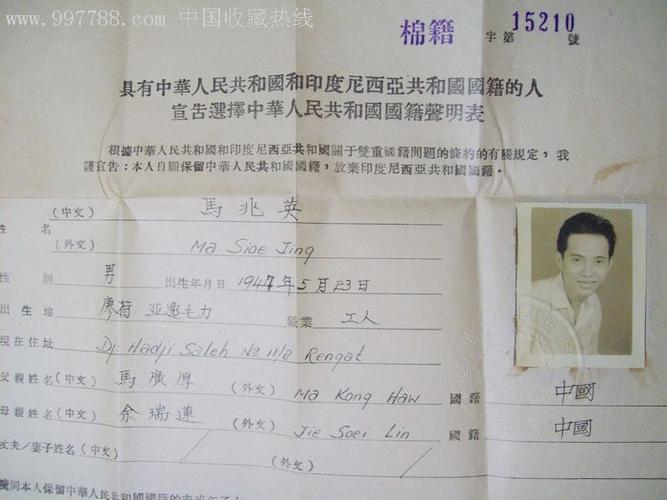 www.997788.com 中国收藏热线
棉籍 字第 15210 號
具有中華人民共和國和印度尼西亞共和國國籍的人
宣告選擇中華人民共和國國籍聲明表
根據中華人民共和國和印度尼西亞共和國關于雙重國籍問題的條約的有關規定，我
謹宣告：本人自願保留中華人民共和國國籍，放棄印度尼西亞共和國國籍。
(中文) 馬兆英
姓名
(外文) Ma Sioe Jing
性別 男 出生年月日 1947年5月23日
出生地 廖荷 亚邀毛力 職業 工人
現在住址 Dj. Hadji Saleh No 11/B Rengat
父親姓名(中文) 馬廣厚 (外文) Ma Kong Haw 國籍 中國
母親姓名(中文) 余瑞蓮 (外文) Jie Soei Lin 國籍 中國
丈夫/妻子姓名(中文) / (外文) /
同本人保留中華人民共和國國籍的未成年子